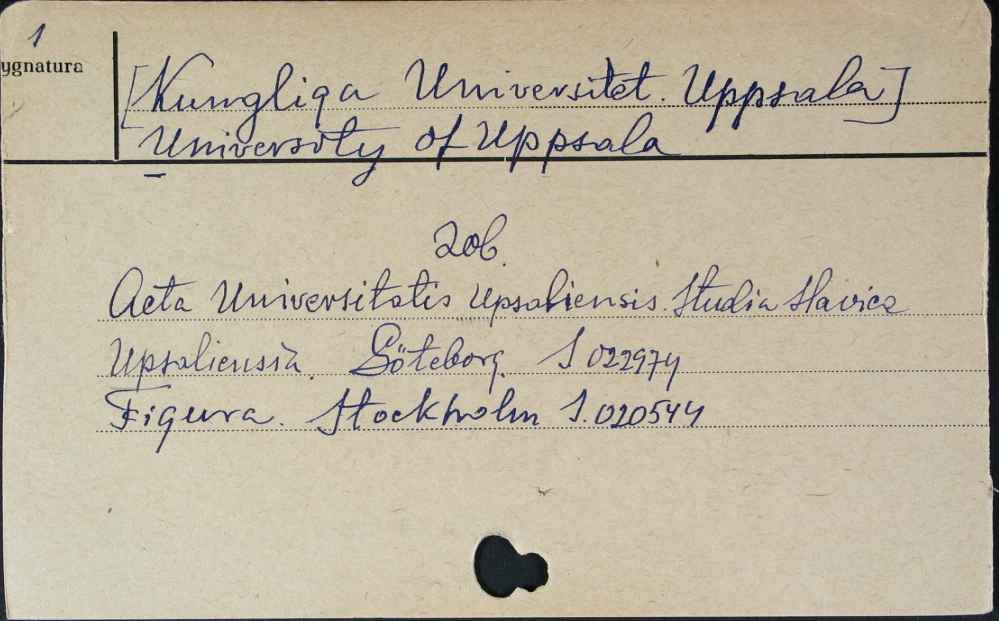 1
ygnatura
[Kungliga Universitet. Uppsala]
University of Uppsala
zob.
Acta Universitatis Upsaliensis. Studia Slavica
Upsaliensia. Göteborg. S 022974
Figura. Stockholm S. 020544